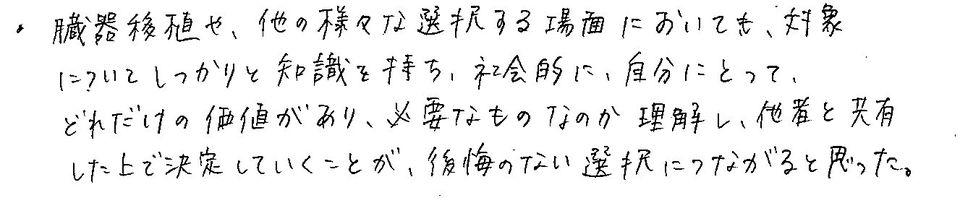 ・臓器移植や、他の様々な選択する場面においても、対象
についてしっかりと知識を持ち、社会的に、自分にとって、
どれだけの価値があり、必要なものなのか理解し、他者と共有
した上で決定していくことが、後悔のない選択につながると思った。